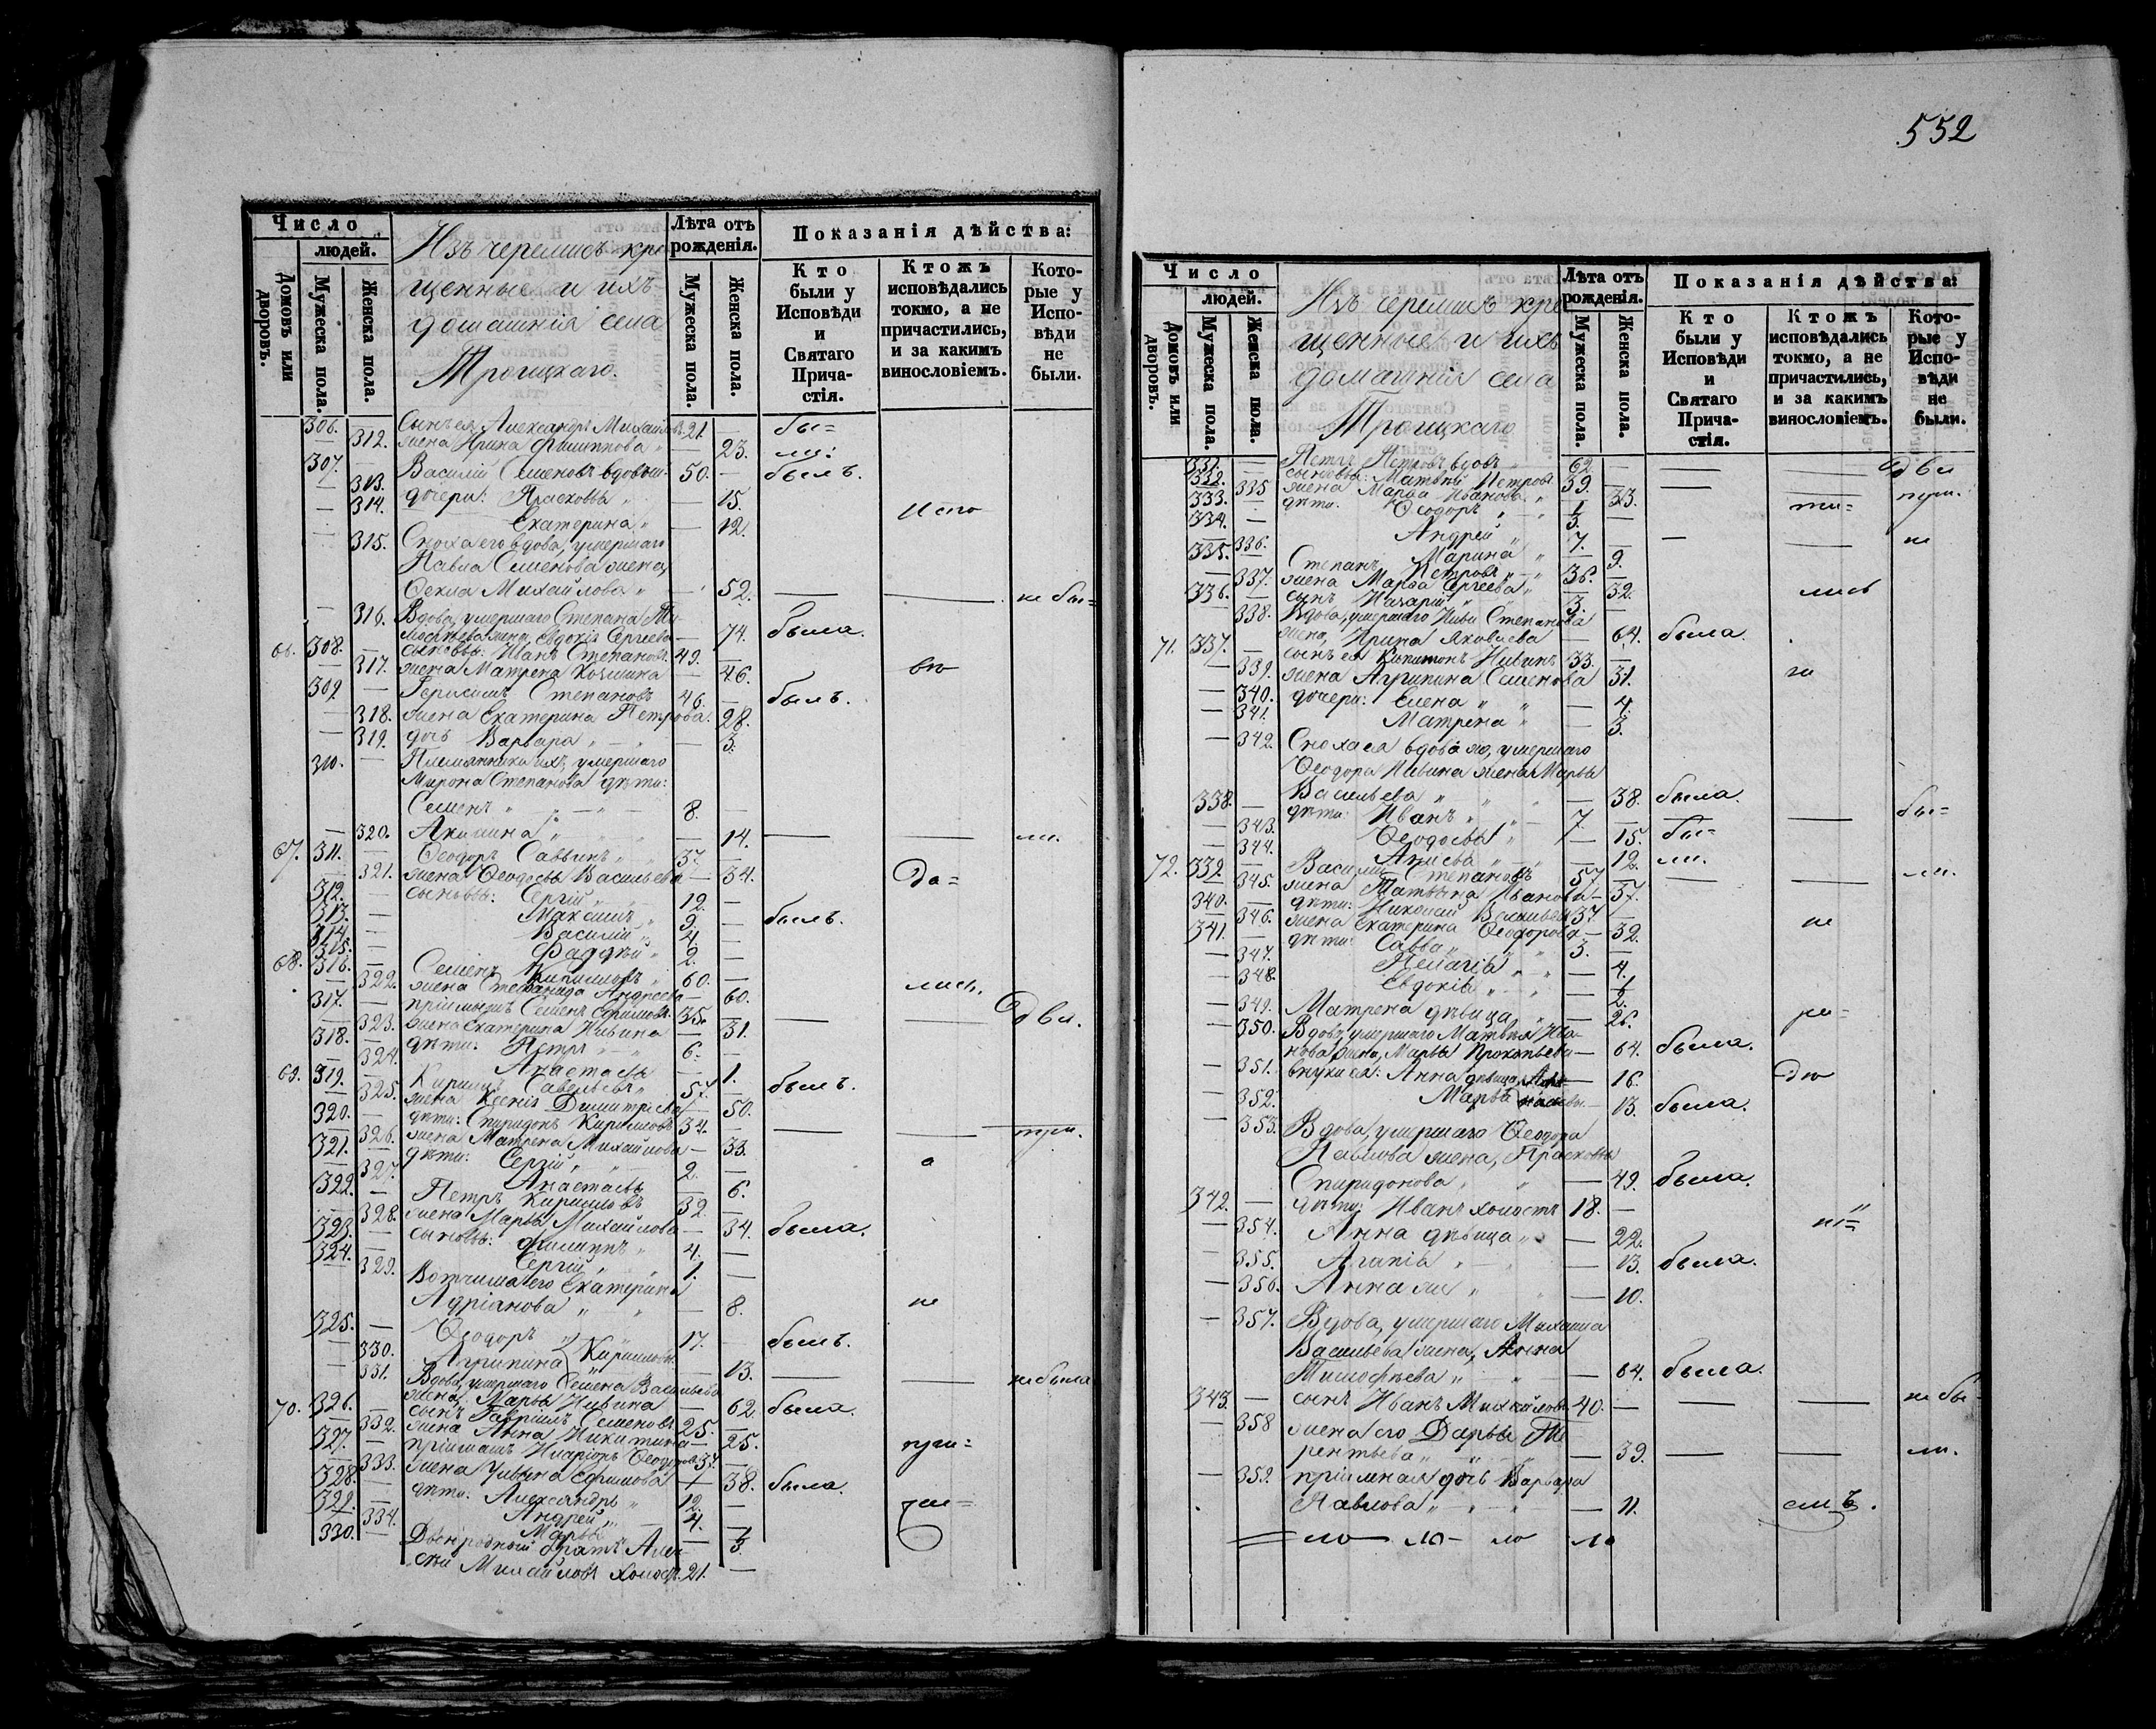 Число
людей.
Домовъ или дворовъ.
Мужеска пола.
Женска пола.
Изъ черемисъ кре
щенные и ихъ
домашнія села
Троицкаго.
Лѣта отъ рожденія.
Мужеска пола.
Женска пола.
Показанія дѣйства:
Кто были у Исповѣди и Святаго Прича-стія.
Ктожъ исповѣдались токмо, а не причастились, и за какимъ винословіемъ.
Кото-рые у Испо-вѣди не были.
306. — Сынъ ея Александръ Михайловъ 21. — бы=
— 312. жена Ирина Филиппова — 23. ли:
307. — Василій Семеновъ вдовъ 50. — былъ.
— 313. дочери: Прасковья — 15.
— 314. Екатерина — 12. Испо
315. Сноха его вдова, умершаго
Павла Семенова жена,
Ѳекла Михайлова — 52. — — не бы=
— 316. Вдова, умершаго Степана Ти
моѳеева жена, Евдокія Сергеева — 74. была.
66. 308. — сыновья: Иванъ Степановъ 49. —
— 317. жена Матрена Козмина — 46. вѣ
309. — Герасимъ Степановъ 46. — былъ.
— 318. жена Екатерина Петрова — 28.
— 319. дочь Варвара — 3.
310. — Племянники ихъ, умершаго
Мирона Степанова дѣти:
Семенъ 8. —
— 320. Акилина — 14. — — ли.
67. 311. — Ѳеодоръ Саввинъ 37. —
— 321. жена Ѳеодосья Васильева — 34. Да=
312. — сыновья: Сергій 12. —
313. — Максимъ 9. — былъ.
314. — Василій 4. —
315. — Фаддѣй 2. —
68. 316. — Семенъ Кирилловъ 60. —
— 322. жена Степанида Андреева — 60. лись.
317. — пріимышъ Семенъ Ефимовъ 35. — Два.
— 323. жена Екатерина Ивина — 31. — —
318. — дѣти: Петръ 6. —
— 324. Анастасья — 1.
69. 319. — Кирилъ Савельевъ 57. — былъ.
— 325. жена Ксенія Димитріева — 50.
320. — дѣти: Спиридонъ Кирилловъ 34. — — — три.
— 326. жена Матрена Михайлова — 33.
321. — дѣти: Сергій 2. — а
— 327. Анастасья — 6.
322. — Петръ Кирилловъ 32. —
— 328. жена Марья Михайлова — 34. была.
323. — сыновья: Филиппъ 4. —
324. — Сергій 1. —
329. Екатерина
Адріанова — 8. не
325. — Ѳеодоръ 17. — былъ.
— 330. Агрипина Кирилловы — 13.
— 331. Вдова, умершаго Семена Васильева — — не была
жена, Марья Ивина — 62. была.
70. 326. — сынъ Гавриилъ Семеновъ 25. —
— 332. жена Анна Никитина — 25. при=
327. — пріимышъ Иларіонъ Ѳеодоровъ 37. —
— 333. жена Ульяна Ефимова — 38. была.
328. — дѣти: Александръ 12. —
329. — Андрей 4. —
— 334. Марья — 3.
330. — Двоюродный братъ Алек
сѣй Михайловъ холостъ 21. —
552
Число
людей.
Домовъ или дворовъ.
Мужеска пола.
Женска пола.
Изъ черемисъ кре
щенные и ихъ
домашнія села
Троицкаго
Лѣта отъ рожденія.
Мужеска пола.
Женска пола.
Показанія дѣйства:
Кто были у Исповѣди и Святаго Прича-стія.
Ктожъ исповѣдались токмо, а не причастились, и за какимъ винословіемъ.
Кото-рые у Испо-вѣди не были.
331. — Петръ Петровъ вдовъ 62. — — Два
332. — сыновья: Матвѣй Петровъ 39. — —
— 335 жена Марѳа Иванова — 33. — три.
333. — дѣти: Ѳеодоръ 1 — ти=
334. — Андрей 3. —
— 336. Марина 7. — — не
335. — Степанъ Петровъ 36. 9.
— 337. жена Марѳа Сергеева — 32. лись
336. — сынъ Назарій 3. —
— 338. Вдова, умершаго Ивы Степанова
жена, Ирина Яковлева — 64. была.
71. 337. — сынъ ея Капитонъ Ивинъ 33. —
— 339. жена Агрипина Семенова 31. за
— 340. дочери: Елена — 4.
— 341. Матрена — 3.
— 342. Сноха ея вдова же, умершаго
Ѳеодора Ивина жена Марья
Васильева — 38. была.
338. — дѣти: Иванъ 7. — — — бы=
— 343. Ѳеодосья — 15. бы=
— 344. Анисья — 12. ли.
72. 339. — Василій Степановъ 57. — — — ли.
— 345. жена Татьяна Иванова — 57.
340. — дѣти: Николай Васильевъ 37. —
— 346. жена Екатерина Ѳеодорова — 32. не
341. — дѣти: Савва 3. —
— 347. Пелагія — 4.
— 348. Евдокія — 1/2.
— 349. Матрена дѣвица — 26. ра=
— 350. Вдова, умершаго Матвѣя Ива-
нова жена, Марья Прокопьева — 64. была.
— 351. внуки ея: Анна дѣвица — 16. Дю
— 352. Марья — 13. была.
— 353. Вдова, умершаго Ѳеодора
Павлова жена, Прасковья
Спиридонова — 49. была.
342. — дѣти: Иванъ холостъ 18. —
— 354. Анна дѣвица — 22.
— 355. Агапія — 13. была.
— 356. Анна же — 10.
— 357. Вдова, умершаго Михаила
Васильева жена, Анна
Тимоѳеева — 64. была.
343. — сынъ Иванъ Михайловъ 40. — — — не бы-
— 358 жена его Дарья Те
рентьева — 39. — — ли.
— 359. пріимная дочь Варвара
Павлова — 11. емъ.